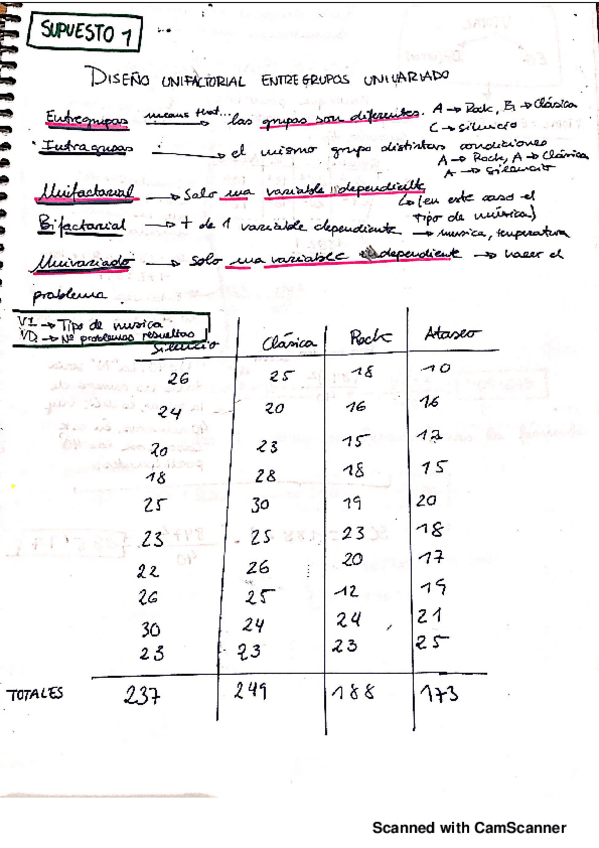 SUPUESTO 1
DISEÑO UNIFACTORIAL ENTREGRUPOS UNIVARIADO
Entregrupos means that... → los grupos son diferentes. A → Rock, B → Clásica
C → Silencio
Intragrupos → el mismo grupo distintas condiciones
A → Rock, A → Clásica
A → Silencio
Unifactorial → Solo una variable independiente
↳ (en este caso el
tipo de música)
Bifactorial → + de 1 variable dependiente → musica, temperatura
Univariado → Solo una variable dependiente → hacer el
problema.
VI → Tipo de musica
VD → Nº problemas resueltos
Silencio Clásica Rock Atasco
26 25 18 10
24 20 16 16
20 23 15 12
18 28 18 15
25 30 19 20
23 25 23 18
22 26 20 17
26 25 12 19
30 24 24 21
23 23 23 25
TOTALES 237 249 188 173
Scanned with CamScanner